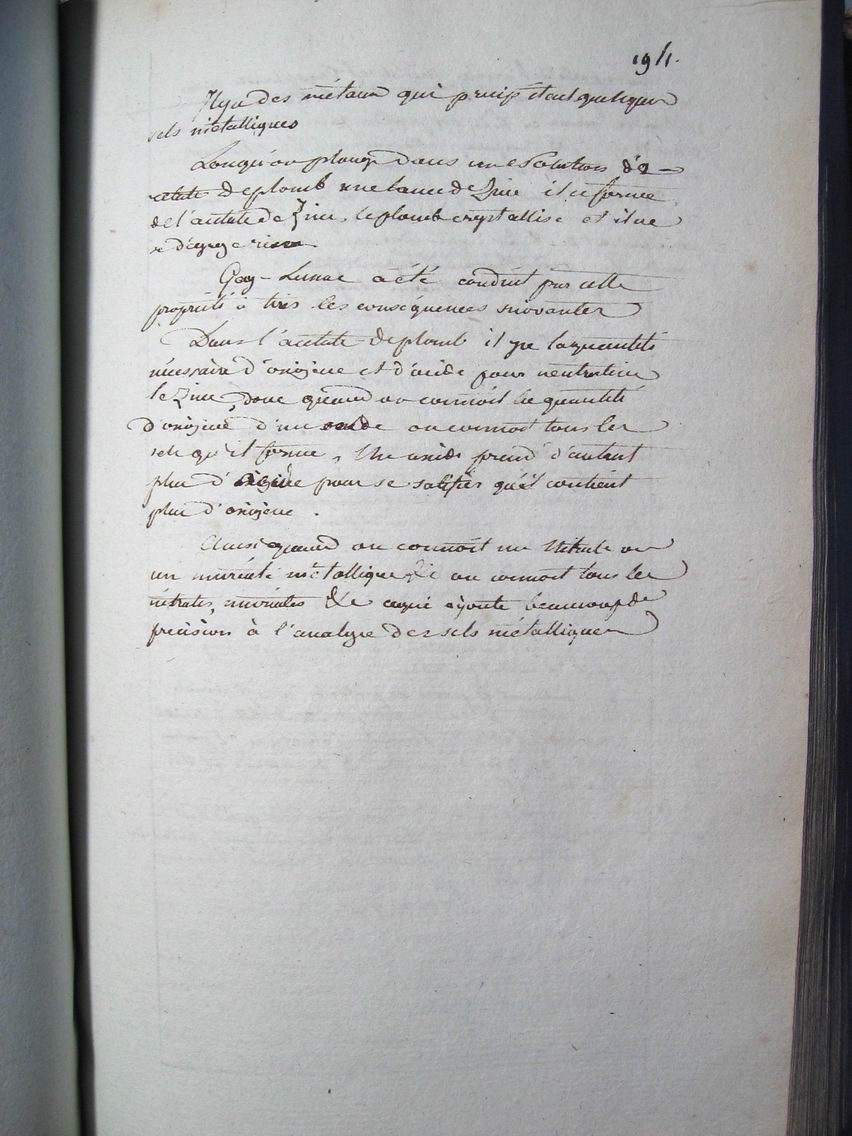 194.
Il y a des métaux qui precipitent quelques
sels métalliques
Lorsqu'on plonge dans une Solution d'a-
cetate de plomb une lame de Zinc il se forme
de l'acétate de Zinc, le plomb crystallise et il ne
se dégage rien
Gay-Lussac a été conduit par cette
propriété à tirer les conséquences suivantes
Dans l'acétate de plomb il y a la quantité
nécessaire d'oxigene et d'acide pour neutraliser
le Zinc, donc quand on connoît la quantité
d'oxigene d'un oxide on connoit tous les
sels qu'il forme, Un oxide prend d'autant
plus d'acide pour se salifier qu'il contient
plus d'oxigene.
Ainsi quand on connoît un Nitrate ou
un muriate métallique &c on connoit tous les
nitrates, muriates &c ce qui ajoute beaucoup de
precision à l'analyse des sels métalliques